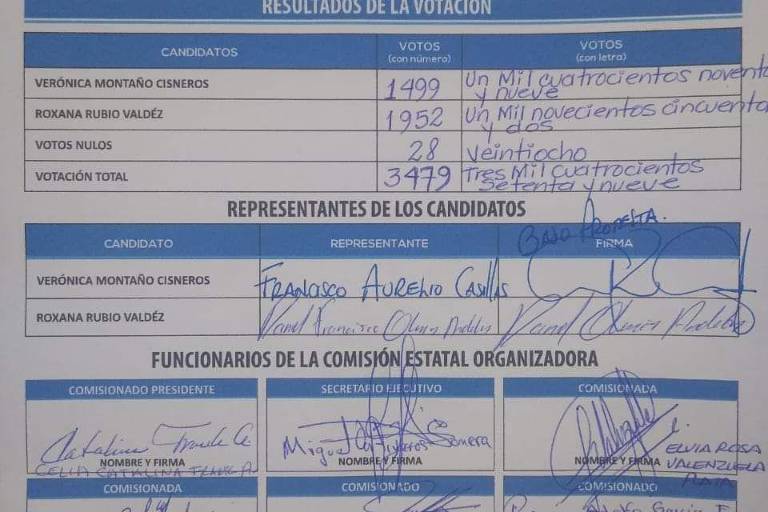 RESULTADOS DE LA VOTACIÓN
CANDIDATOS VOTOS (con número) VOTOS (con letra)
VERÓNICA MONTAÑO CISNEROS 1499 Un Mil cuatrocientos novent
y nueve
ROXANA RUBIO VALDÉZ 1952 Un Mil novecientos cincuenta
y dos
VOTOS NULOS 28 veintiocho
VOTACIÓN TOTAL 3479 Tres Mil cuatrocientos
Setenta y nueve
REPRESENTANTES DE LOS CANDIDATOS
BAJO PROTESTA.
CANDIDATO REPRESENTANTE FIRMA
VERÓNICA MONTAÑO CISNEROS FRANCISCO AURELIO CASILLAS
ROXANA RUBIO VALDÉZ Francisco
FUNCIONARIOS DE LA COMISIÓN ESTATAL ORGANIZADORA
COMISIONADO PRESIDENTE SECRETARIO EJECUTIVO COMISIONADA
Catalina Miguel
ELVIA ROSA
NOMBRE Y FIRMA NOMBRE Y FIRMA NOMBRE Y FIRMA VALENZUELA
CELIA CATALINA PLATA
COMISIONADA COMISIONADO COMISIONADO